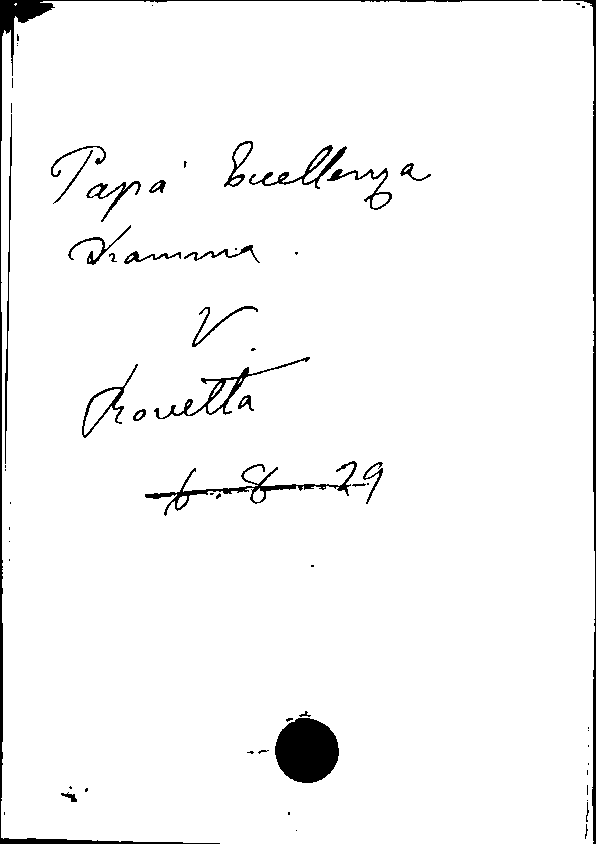 Papá Eccellenza
Dramma.
V.
Rovetta
6.8.29